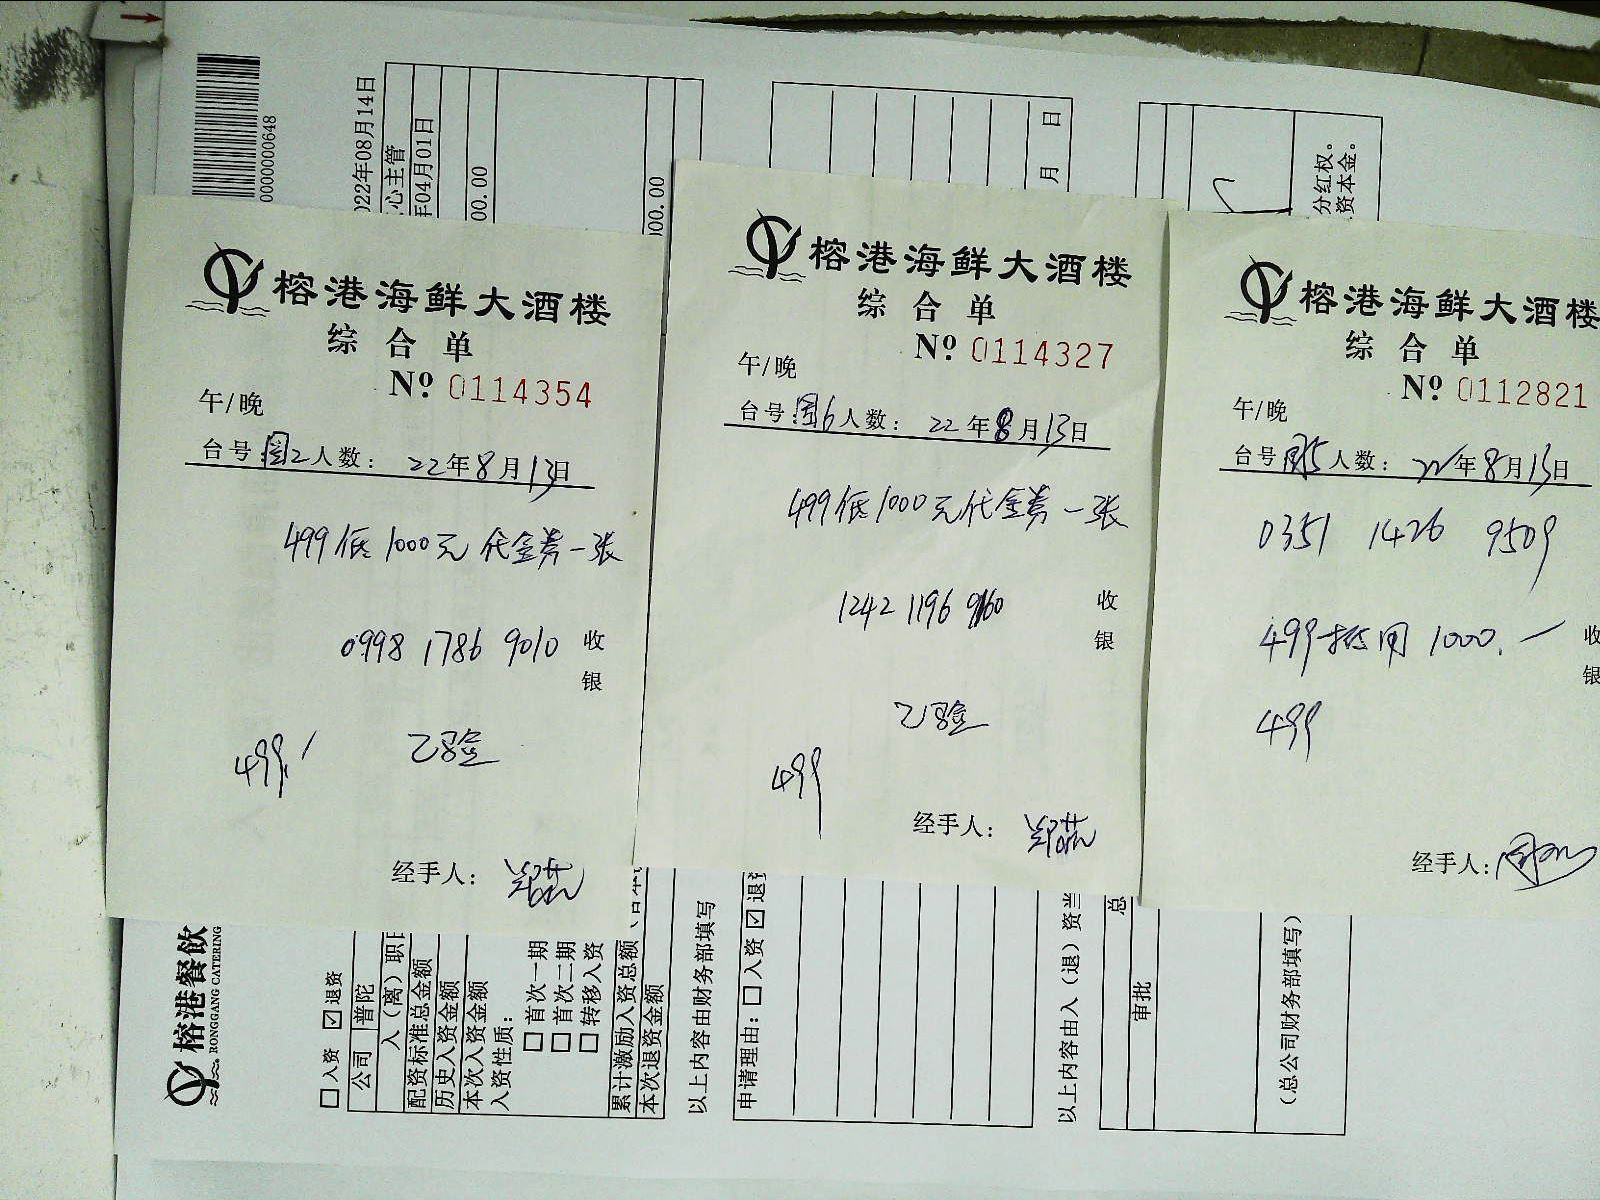 榕港海鲜大酒楼
综合单
Nº 0114354
午/晚
台号:国2人数: 22年8月13日
499低1000元代金券一张
0998 1786 9010
收
银
499.
已验
经手人:
榕港海鲜大酒楼
综合单
Nº 0114327
午/晚
台号:国6人数: 22年8月13日
499低1000元代金券一张
1242 1196 9160
收
银
已验
499
经手人:
榕港海鲜大酒楼
综合单
Nº 0112821
午/晚
台号 人数: 22年8月13日
0351 1426 9509
499抵用1000.一
收
银
499
经手人:
0000000648
022年08月14日
心主管
年04月01日
00.00
000.00
月 日
分红权。
资本金。
榕港餐饮
RONGGANG CATERING
□入资 ☑退资
公司 普陀
入（离）职日
配资标准总金额
历史入资金额
本次入资金额
入资性质:
□首次一期
□首次二期
□转移入资
累计激励入资总额
本次退资金额
以上内容由财务部填写
申请理由: □入资 ☑退资
以上内容由入（退）资当
总
审批
（总公司财务部填写）